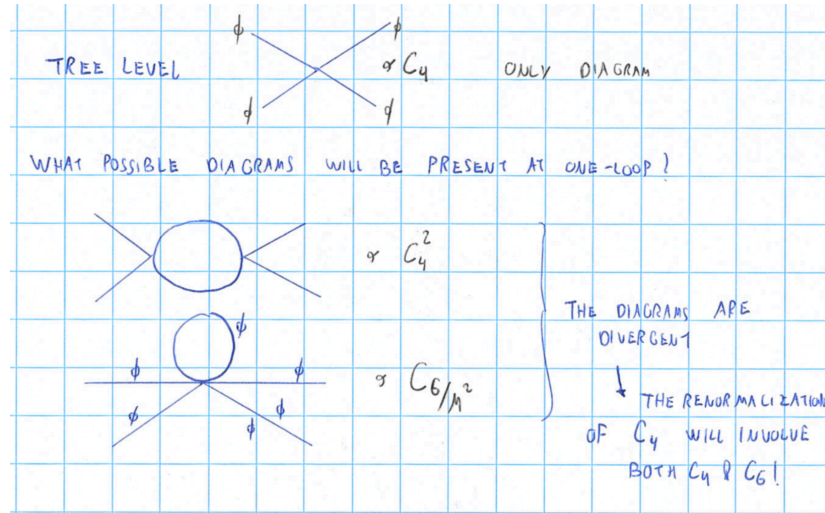 ϕ ϕ
TREE LEVEL ∝ C₄ ONLY DIAGRAM
ϕ ϕ
WHAT POSSIBLE DIAGRAMS WILL BE PRESENT AT ONE-LOOP?
∝ C₄²
THE DIAGRAMS ARE
DIVERGENT
ϕ
ϕ ϕ
∝ C₆/M²
ϕ ϕ
ϕ
THE RENORMALIZATION
OF C₄ WILL INVOLVE
BOTH C₄ & C₆!